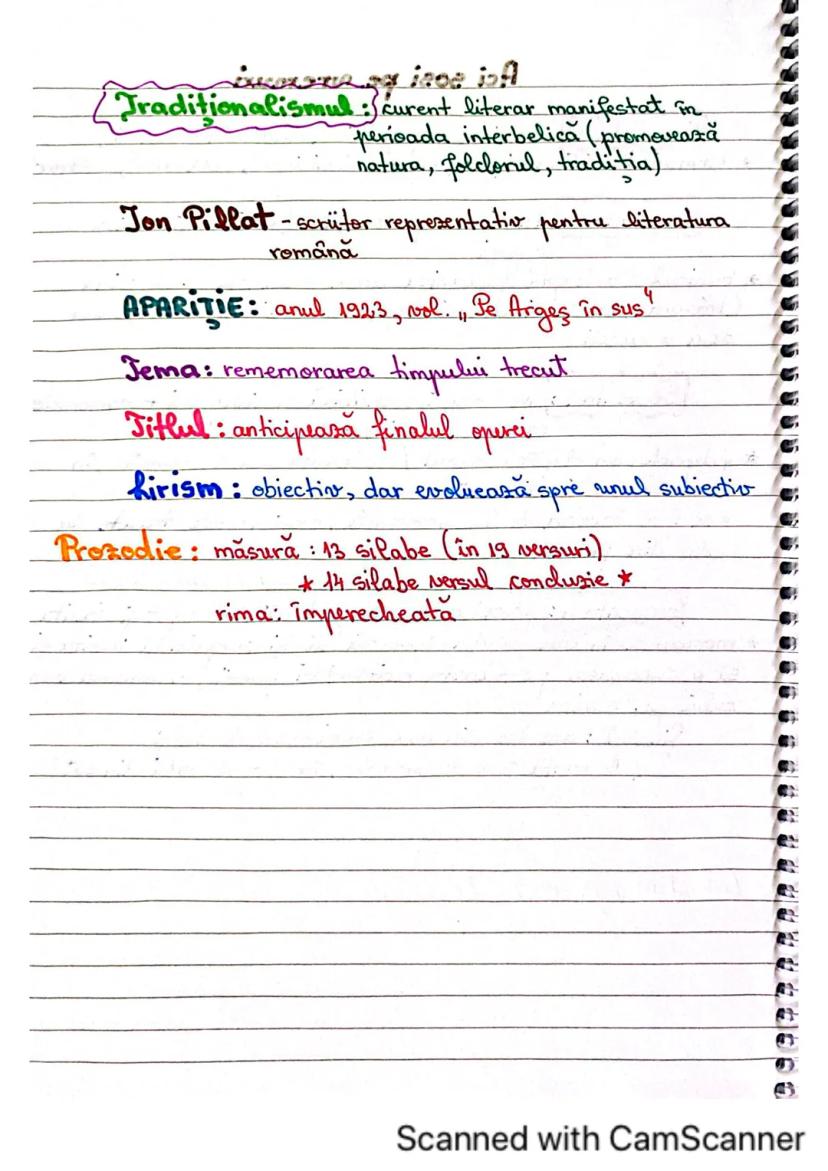 Tradiționalismul: curent literar manifestat în
perioada interbelică (promovează
natura, folclorul, tradiția)
Ion Pillat - scriitor reprezentativ pentru literatura
română
APARIȚIE: anul 1923, vol. „Pe Argeș în sus"
Tema: rememorarea timpului trecut
Titlul: anticipează finalul operei
Lirism: obiectiv, dar evoluează spre unul subiectiv
Prozodie: măsură: 13 silabe (în 19 versuri)
* 14 silabe versul concluzie *
rima: împerecheată
Scanned with CamScanner